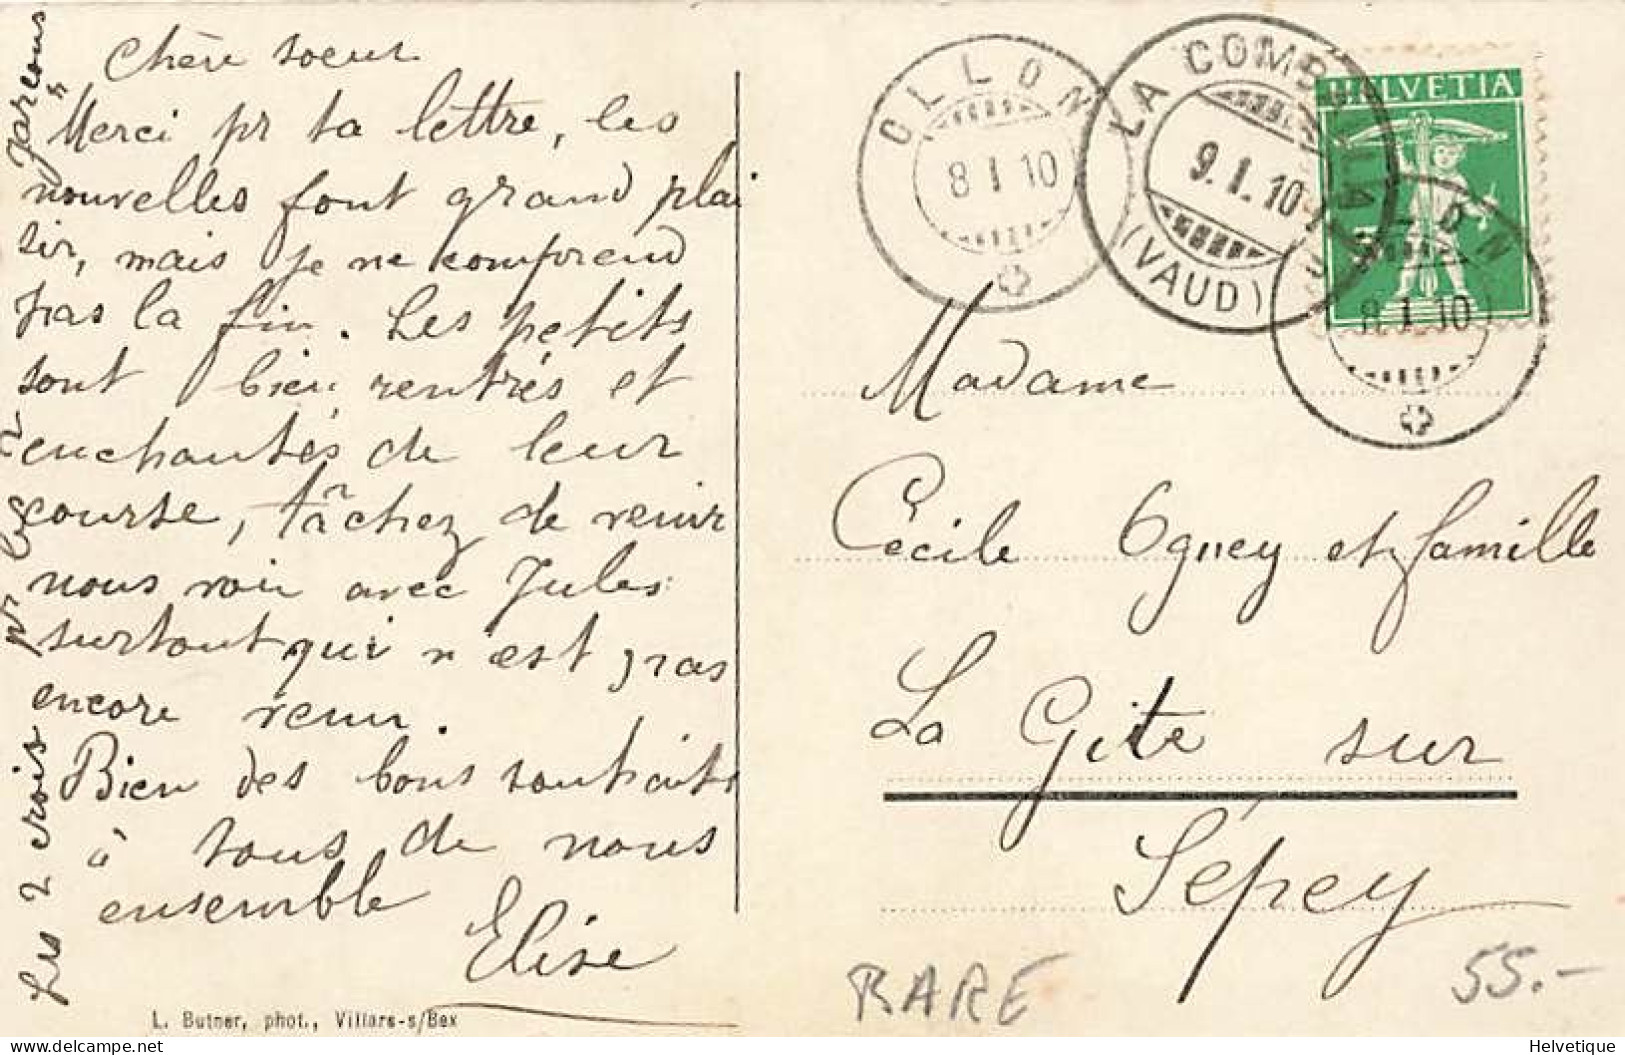 Chère soeur
Merci pr ta lettre, les
nouvelles font grand plai
sir, mais je ne comprend
pas la fin. Les petits
sont bien rentrés et
enchantés de leur
course, tâchez de venir
nous voir avec Jules
surtout qui n'est pas
encore venu.
Bien des bons souhaits
à tous de nous
ensemble
Elise
Les 2 croix pr les 2 garcons
L. Butner, phot., Villars-s/Bex
OLLON
8 I 10
LA COMBALLAZ
9.I.10
(VAUD)
HELVETIA
5
OLLON
8.I.10
Madame
Cécile Oguey et famille
La Gite sur
Sépey
RARE
55.-
delcampe.net
Helvetique